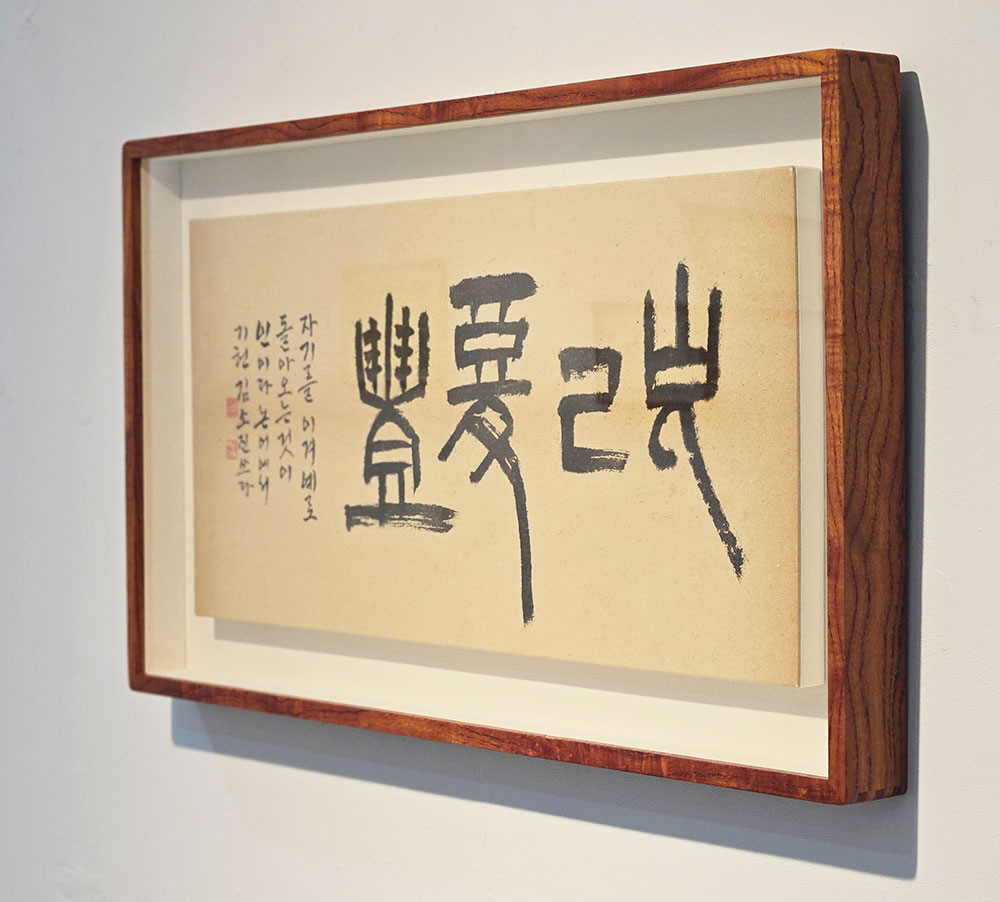 克己复豊
자기를 이겨 예로
돌아오는것이
인이다 논어에서
기헌 김소진 쓰다